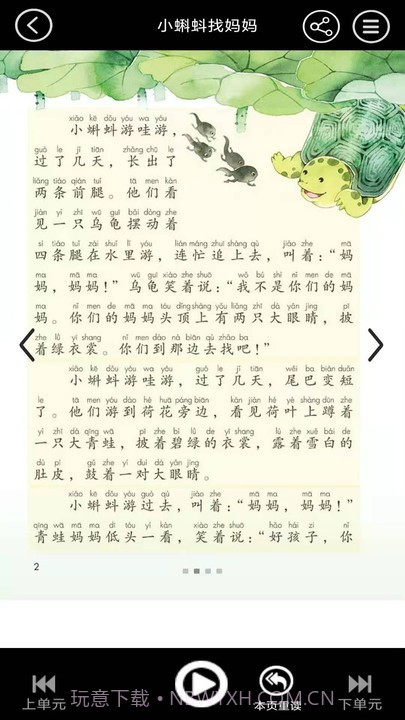 小蝌蚪找妈妈
xiǎo kē dǒu yóu wa yóu
小蝌蚪游哇游，
guò le jǐ tiān zhǎng chū le
过了几天，长出了
liǎng tiáo qián tuǐ tā men kàn
两条前腿。他们看
jiàn yì zhī wū guī bǎi dòng zhe
见一只乌龟摆动着
sì tiáo tuǐ zài shuǐ lǐ yóu lián máng zhuī shàng qù jiào zhe mā
四条腿在水里游，连忙追上去，叫着：“妈
ma mā ma wū guī xiào zhe shuō wǒ bú shì nǐ men de mā
妈，妈妈！”乌龟笑着说：“我不是你们的妈
ma nǐ men de mā ma tóu dǐng shàng yǒu liǎng zhī dà yǎn jing pī
妈。你们的妈妈头顶上有两只大眼睛，披
zhe lǜ yī shang nǐ men dào nà biān qù zhǎo ba
着绿衣裳。你们到那边去找吧！”
xiǎo kē dǒu yóu wa yóu guò le jǐ tiān wěi ba biàn duǎn
小蝌蚪游哇游，过了几天，尾巴变短
le tā men yóu dào hé huā páng biān kàn jiàn hé yè shàng dūn zhe
了。他们游到荷花旁边，看见荷叶上蹲着
yì zhī dà qīng wā pī zhe bì lǜ de yī shang lù zhe xuě bái de
一只大青蛙，披着碧绿的衣裳，露着雪白的
dù pí gǔ zhe yí duì dà yǎn jing
肚皮，鼓着一对大眼睛。
xiǎo kē dǒu yóu guò qù jiào zhe mā ma mā ma
小蝌蚪游过去，叫着：“妈妈，妈妈！”
qīng wā mā ma dī tóu yí kàn xiào zhe shuō hǎo hái zi nǐ
青蛙妈妈低头一看，笑着说：“好孩子，你
2
上单元
本页重读
下单元
玩意下载-N3WYXH.COM.CN